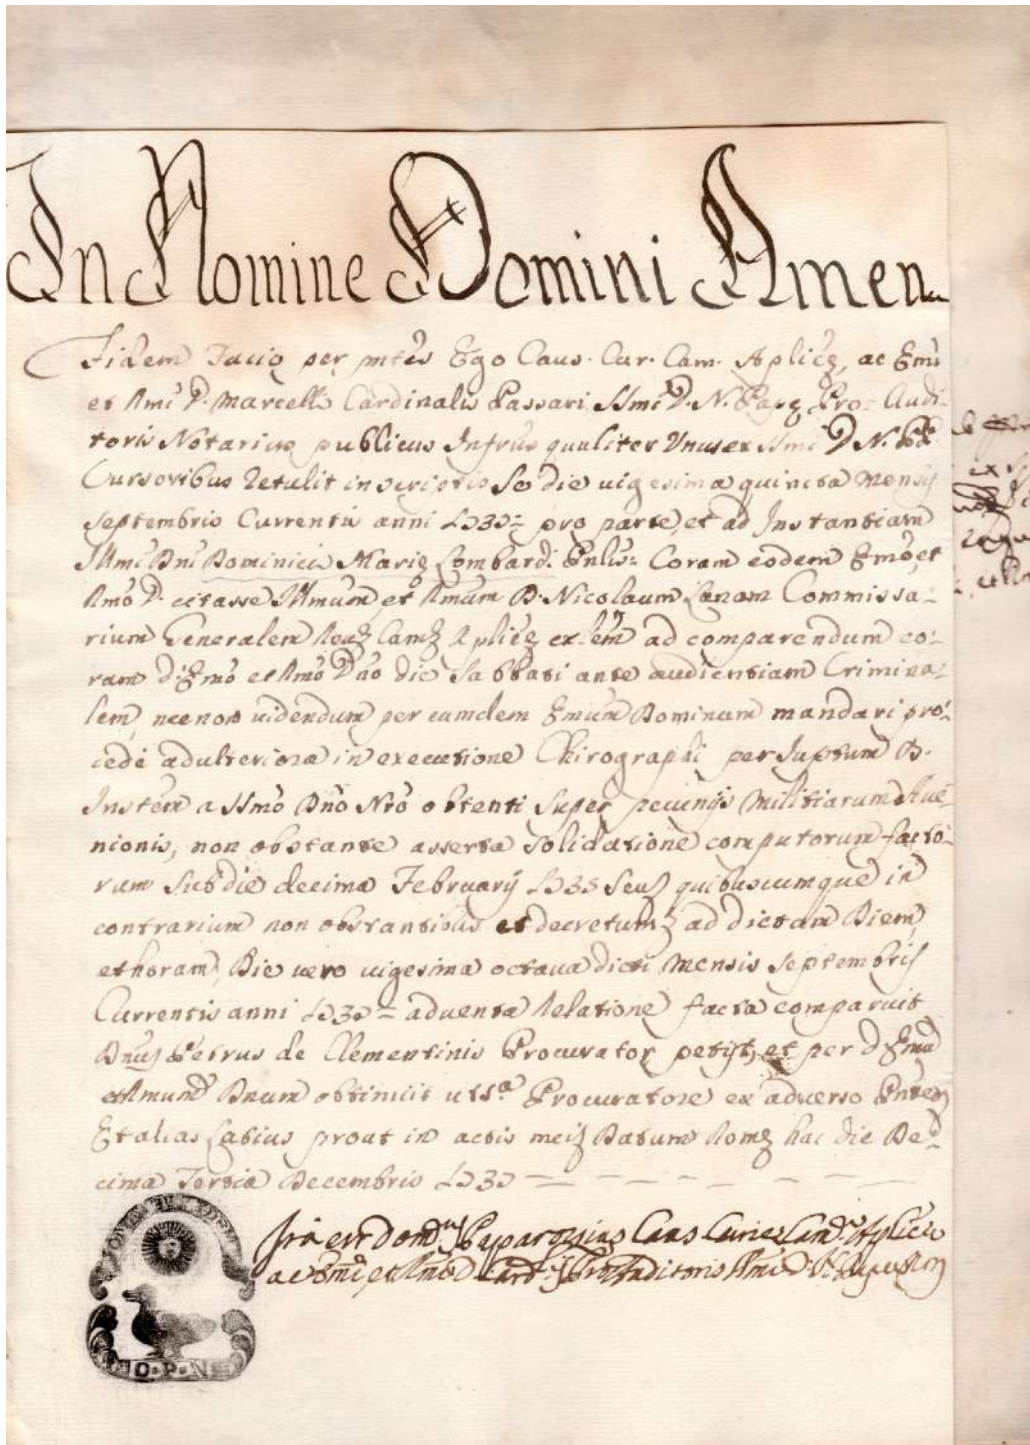 In Nomine Domini Amen
Fidem facio per pntes Ego Caus. Cur. Cam. Aplicę, ac Emi
et Rmi D. Marcelli Cardinalis Passari SSmi D. N. Papę Pro- Audi-
toris Notarius publicus Infrus qualiter Unus ex SSmi D N. PP.
Cursoribus Retulit in scriptis Se die vigesima quinta Mensis
Septembris Currentis anni 1737= pro parte, et ad Instantiam
Illmi Dni Dominici Marię Lombardi Coram eodem Emo, et
Rmo D. citasse Illmum et Rmum D. Nicolaum Commissa-
rium Generalem Camę Aplicę ad comparendum co-
ram d. Emo et Rmo Dno die Sabbati ante audientiam Crimina-
lem, necnon videndum per eumdem Emum Dominum mandari pro-
cedi ad ulteriora in executione Chirographi per suptum D.
Instem a SSmo Dno Nro obtenti super pecunijs Militiarum Ave-
nionis, non obstante asserta solidatione computorum facto-
rum sub die decima Februarij 1735 Seu quibuscumque in
contrarium non obstantibus et decretum ad dictam Diem,
et horam, Die vero vigesima octava dicti Mensis Septembris
Currentis anni 1737 = adventa Relatione facta comparuit
Dnus Petrus de Clementinis Procurator petijt, et per d. Emum
et Rmum Dnum obtinuit Procuratore ex adverso
Et alias Latius prout in actis meis Datum Romę hac die De-
cima Tertia Decembris 1737
Caus Curię Cam. Aplicę
ac Emi, et Rmi D. Card. Pro Auditoris
O·P·N